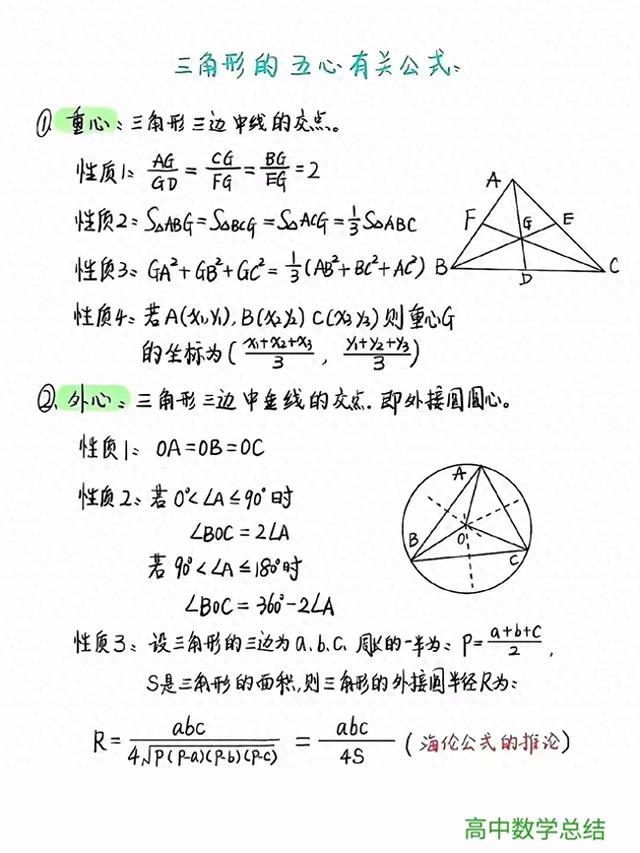 三角形的五心有关公式:
①重心:三角形三边中线的交点。
性质1: AG/GD = CG/FG = BG/EG = 2
性质2: S△ABG=S△BCG=S△ACG=1/3 S△ABC
性质3: GA²+GB²+GC²=1/3(AB²+BC²+AC²)
性质4: 若A(x₁,y₁), B(x₂y₂) C(x₃y₃)则重心G
的坐标为((x₁+x₂+x₃)/3 , (y₁+y₂+y₃)/3)
A
F
G
E
B
D
C
②外心:三角形三边中垂线的交点.即外接圆圆心。
性质1: OA=OB=OC
性质2: 若0°<∠A≤90°时
∠BOC=2∠A
若90°<∠A≤180°时
∠BOC=360°-2∠A
A
B
O
C
性质3: 设三角形的三边为a.b.c. 周长的一半为: P=(a+b+c)/2,
S是三角形的面积,则三角形的外接圆半径R为:
R= abc/(4√P(P-a)(P-b)(P-c)) = abc/4S (海伦公式的推论)
高中数学总结